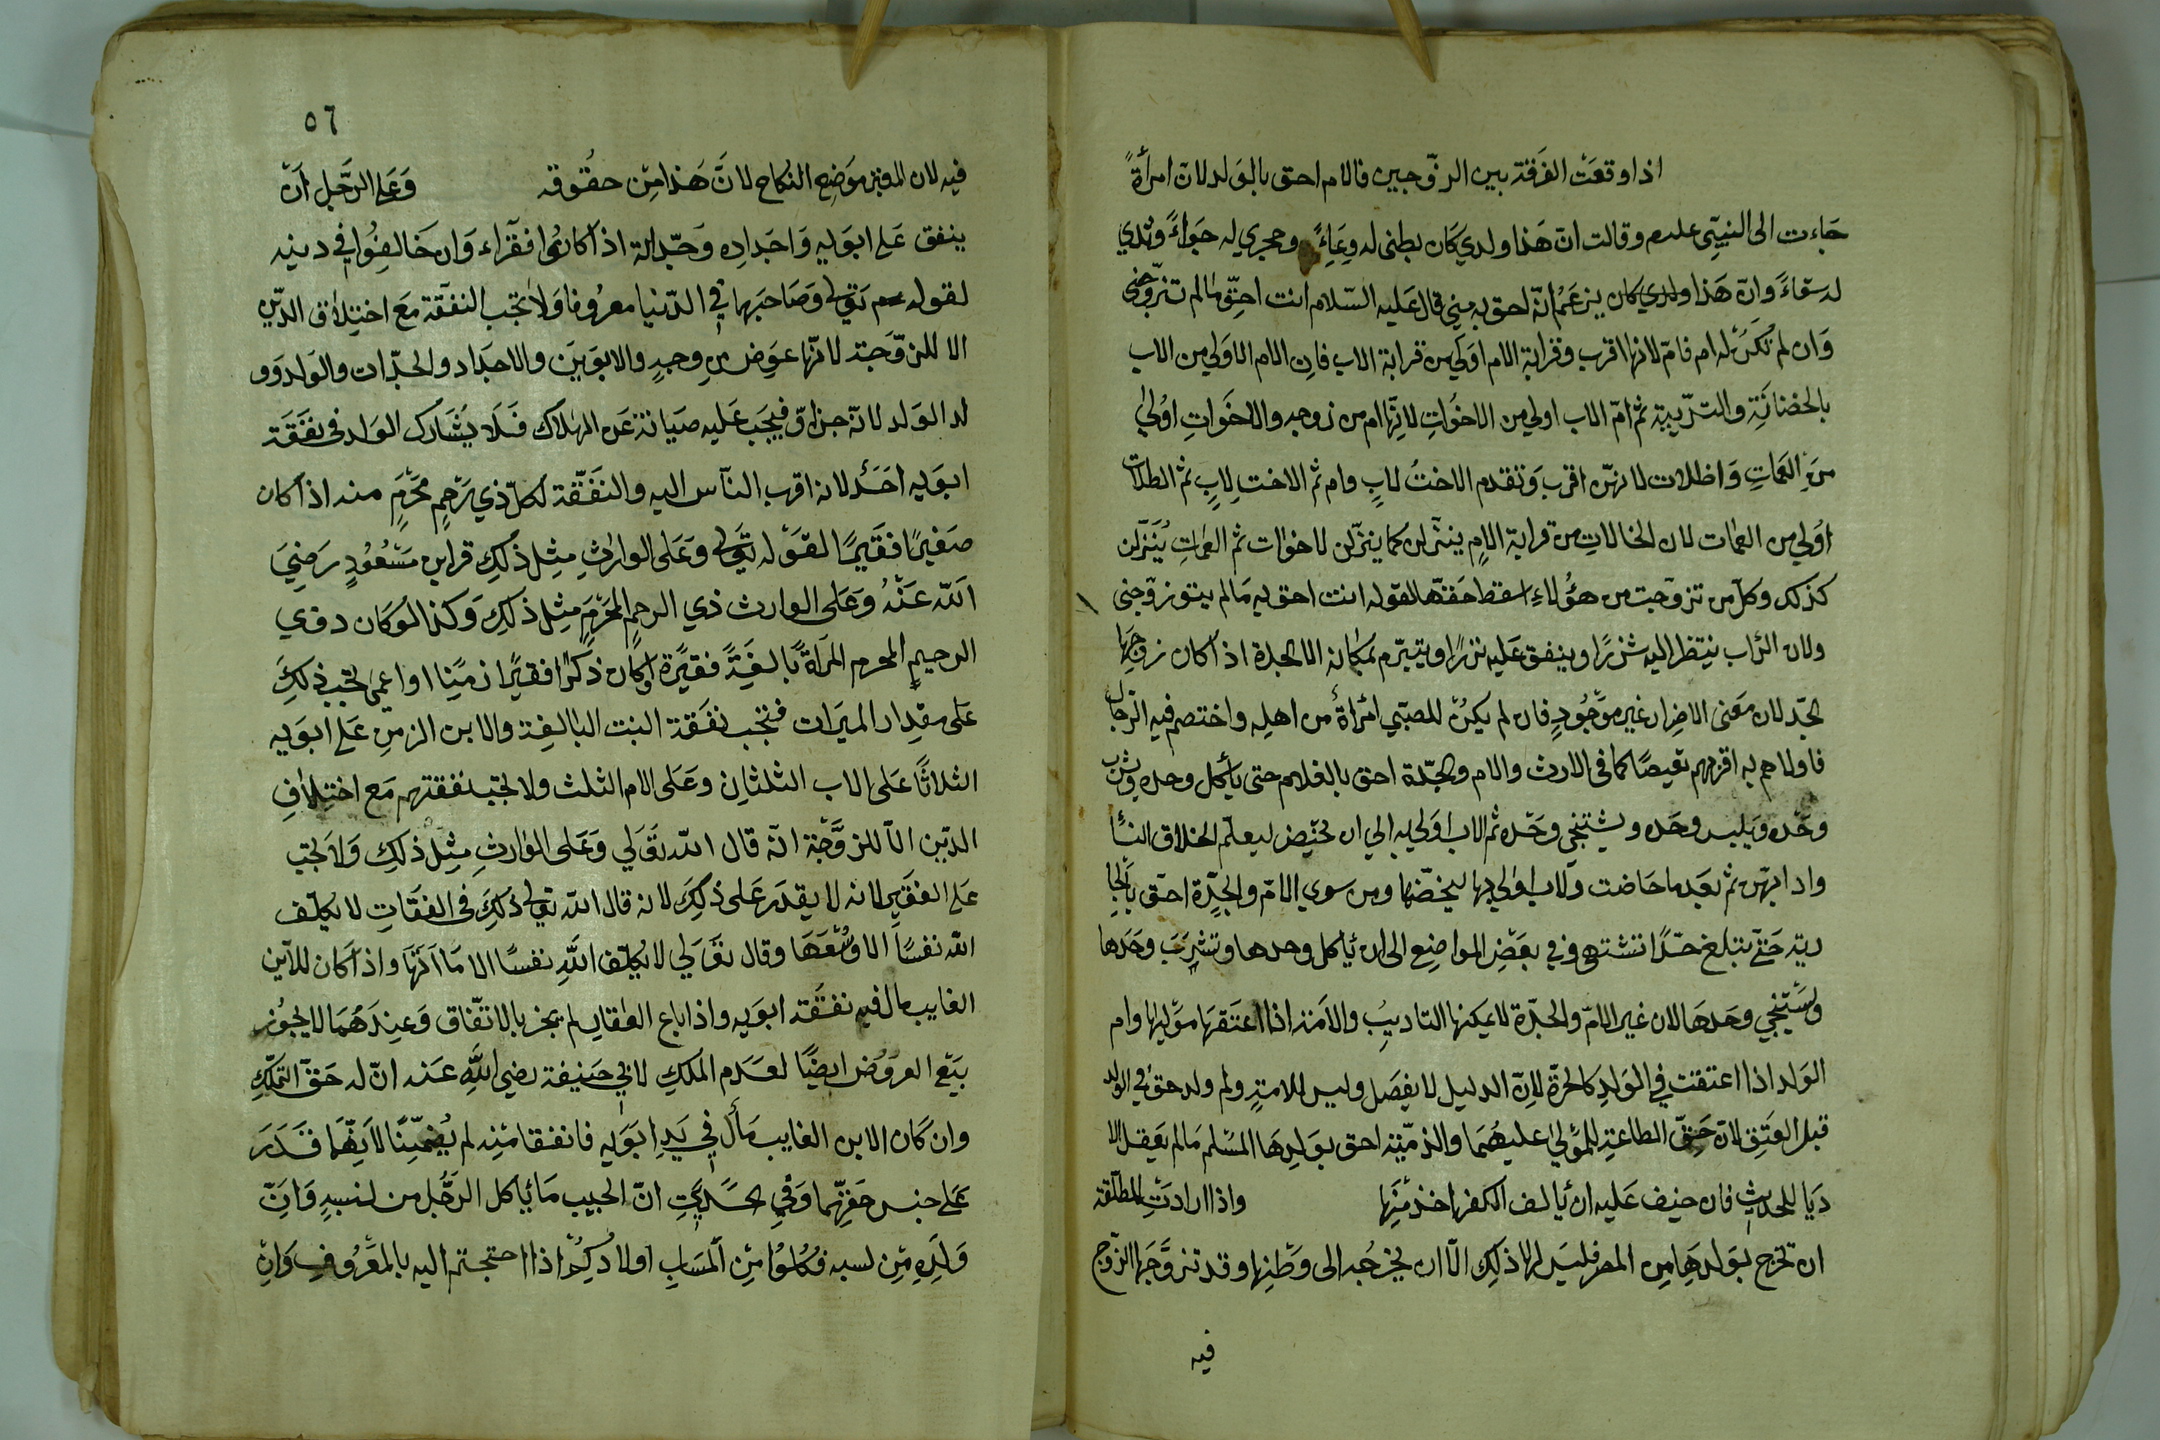 اذا وقعت الفرقة بين الزوجين فالام احق بالولد لان امرأة
جاءت الى النبي علم وقالت ان هذا ولدي كان بطنى له وعاء وحجري له حواء وثدي
له سقاء وان هذا ولدي كان يزعم انه احق به مني قال عليه السلام انت احق ما لم تتزوجى
وان لم تكن له ام فام لانها اقرب وقرابة الام اولى من قرابة الاب فان الام الاولى من الاب
بالحضانة والتربية ثم ام الاب اولى من الاخوات لانها ام من زوجه والاخوات اولى
من العمات واظلات لانهن اقرب وتقدم الاخت لاب وام ثم الاخت لاب ثم الطلات
اولى من العمات لان الخالات من قرابة الام ينزلن كما ينزلن لاخوات ثم العمات ينزلن
كذلك وكل من تزوجت من هؤلاء اسقط حقها لقوله انت احق به مالم يتوزوجنى
ولان الراب ينظر اليه شزرا وينفق عليه نزرا ويتبرم بمكانه الا الجدة اذا كان زوجها
الجد لان معنى الاضرار غير موجود فان لم يكن للصبي امرأة من اهله واختصم فيه الرجال
فاولاهم به اقربهم تعيصا كما فى الارث والام والجدة احق بالغلام حتى يأكل وحده ويشرب
وحده ويلبس وحده ويستنجي وحده ثم الاب اولى به الي ان يحيض ليعلم اخلاق النسا
واد ابهن ثم بعد ما حاضت والاب اولى بها ليخصنها ومن سوي الام والجدة احق بالجا
رية حتى تبلغ حدا تشتهى وفي بعض المواضع الى ان تأكل وحدها وتشرب وحدها
وتستنجي وحدها لان غير الام والجدة لا يمكنها التاديب والامة اذا اعتقها موليها وام
الولد اذا اعتقت في الولد كالحرة لان الدليل لا يفصل وليس للامة ولم ولد حق في الولد
قبل العتق لان حق الطاعة للمولى عليهما والذمية احق بولدها المسلم مالم يعقل الا
ديا للحديث فان خيف عليه ان يالف الكفر اخذ منها واذا ارادت المطلقة
ان تخرج بولدها من المصر فليس لها ذلك الا ان يخرجه الى وطنها وقد تزوجها الزوج
فيه
٥٦
فيه لان المعتبر موضع النكاح لان هذا من حقوقه وعلى الرجل ان
ينفق على ابويه واجداده وجداته اذا كانوا فقراء وان خالفوا في دينه
لقوله تعالى وصاحبهما في الدنيا معروفا ولا تجب النفقة مع اختلاف الدين
الا للزوجة لانها عوض من وجه والابوين والاجداد والجدات والولد وو
لد الولد لانه جزاؤ فيجب عليه صيانة عن الهلاك فلا يشارك الولد فى نفقة
ابويه احد لانه اقرب الناس اليه والنفقة لكل ذي رحم محرم منه اذا كان
صغيرا فقيرا لقوله تعالى وعلى الوارث مثل ذلك قرا ابن مسعود رضي
الله عنه وعلى الوارث ذي الرحم المحرم مثل ذلك وكذا لو كان دوي
الرحيم المحرم المرأة بالغة فقيرة او كان ذكرا فقيرا زمنا او اعمى تجب ذلك
على مقدار الميراث فتجب نفقة البنت البالغة والابن الزمن على ابويه
اثلاثا على الاب الثلثان وعلى الام الثلث ولا تجب نفقتهم مع اختلاف
الدين الا للزوجة انه قال الله تعالي وعلى الوارث مثل ذلك ولا تجب
على الفقير لانه لا يقدر على ذلك لانه قال الله تعالى ذلك فى الفقات لا يكلف
الله نفسا الا وسعها وقال تعالي لا يكلف الله نفسا الا ما اتها واذا كان للابن
الغايب مال فيه نفقة ابويه واذا باع العقار لم يجز بالاتفاق وعندهما لا يجوز
بيع العروض ايضا لعدم الملك لابي حنيفة رضي الله عنه ان له حق التملك
وان كان الابن الغايب مال في يد ابويه فانفقا منه لم يضمنا لانهما قدر
على جنس حقهما وفي ان الحبيب ما يأكل الرجل من لنسبه وان
ولده من لسبه فكلوا من السباب اولادكم اذا احتجتم اليه بالمعروف وان